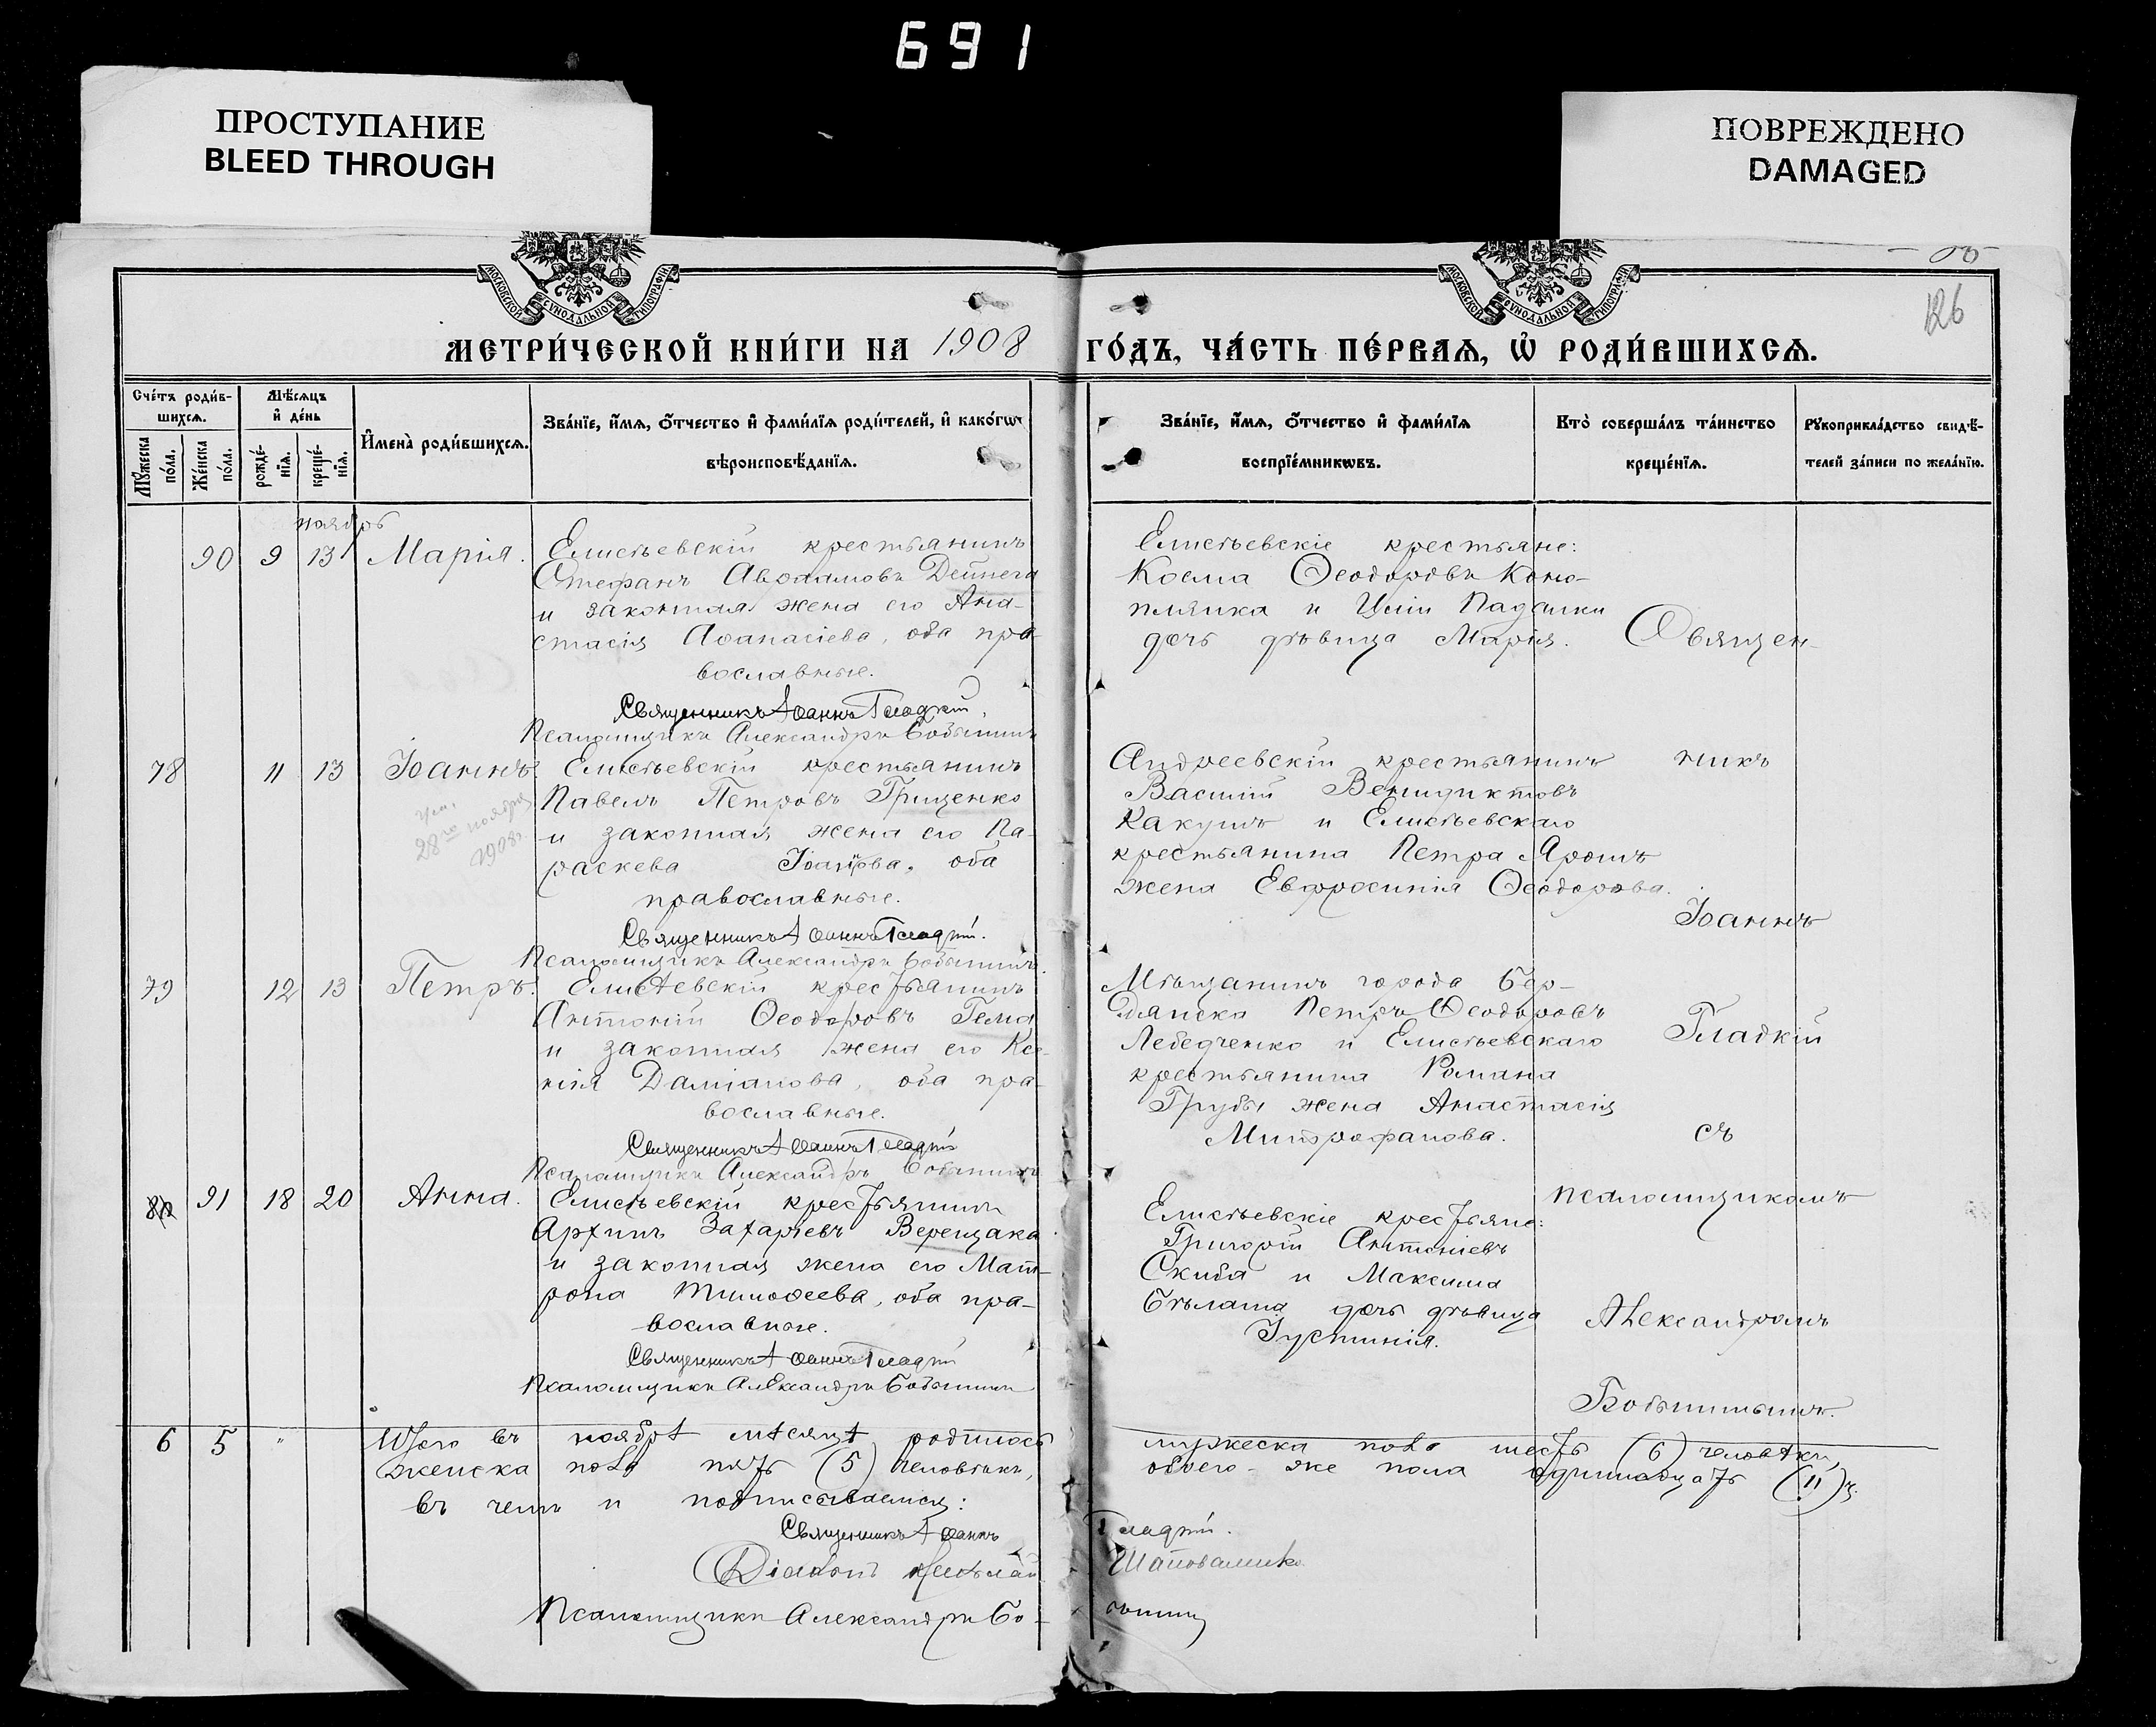 691
ПРОСТУПАНИЕ
BLEED THROUGH
ПОВРЕЖДЕНО
DAMAGED
МОСКОВСКОЙ СѴНОДАЛЬНОЙ ТИПОГРАФІИ
МОСКОВСКОЙ СѴНОДАЛЬНОЙ ТИПОГРАФІИ
126
МЕТРИ́ЧЕСКОЙ КНИ́ГИ НА 1908 ГО́ДЪ, ЧА́СТЬ ПЕ́РВАѦ, Ѡ҆ РОДИ́ВШИХСѦ.
Сче́тъ роди́в-
шихсѧ.
Мѣ́сѧцъ
и҆ де́нь
Мꙋ́жеска по́ла.
Же́нска по́ла.
рожде́-
нїѧ.
креще́-
нїѧ.
И҆мена̀ роди́вшихсѧ.
Зва́нїе, и҆́мѧ, ѻ҆́тчество и҆ фами́лїѧ роди́телей, и҆ како́гѡ
вѣроисповѣ́данїѧ.
Зва́нїе, и҆́мѧ, ѻ҆́тчество и҆ фами́лїѧ
воспрїе́мникѡвъ.
Кто̀ соверша́лъ та́инство
креще́нїѧ.
Рꙋкоприкла́дство свидѣ́-
телей за́писи по жела́нїю.
ноябрь
90 9 13 Марія. Елисѣевскій крестьянинъ
Стефанъ Авраамовъ Дейнега
и законная жена его Ана-
стасія Аѳанасіева, оба пра-
вославные.
Священникъ Іоаннъ Гладкій.
Псаломщикъ Александръ Бобынинъ
Елисѣевскіе крестьяне:
Косма Ѳеодоровъ Коно-
плянка и
дочь дѣвица Марія.
Священ-
78 11 13 Іоаннъ. Елисѣевскій крестьянинъ
Павелъ Петровъ Грищенко
и законная жена его Па-
раскева Іоаннова, оба
православные.
ум.
28го ноября
1908г.
Священникъ Іоаннъ Гладкій.
Псаломщикъ Александръ Бобынинъ.
Андреевскій крестьянинъ
Василій Венедиктовъ
Какушъ и Елисѣевскаго
крестьянина Петра Ярошъ
жена Евфросинія Ѳеодорова.
никъ
Іоаннъ
79 12 13 Петръ. Елисѣевскій крестьянинъ
Антоній Ѳеодоровъ Гема
и законная жена его Ксе-
нія Даміанова, оба пра-
вославные.
Священникъ Іоаннъ Гладкій
Псаломщикъ Александръ Бобынинъ
Мѣщанинъ города Бер-
дянска Петръ Ѳеодоровъ
Лебедченко и Елисѣевскаго
крестьянина Романа
Грубы жена Анастасія
Митрофанова.
Гладкій
съ
80 91 18 20 Анна. Елисѣевскій крестьянинъ
Архипъ Захаріевъ Верещака
и законная жена его Мат-
рона Тимоѳеева, оба пра-
вославные.
Священникъ Іоаннъ Гладкій
Псаломщикъ Александръ Бобынинъ
Елисѣевскіе крестьяне:
Григорій Антоніевъ
Скиба и Максима
Бѣлаша дочь дѣвица
Іустинія.
псаломщикомъ
Александромъ
Бобынинымъ.
6 5 " Итого въ ноябрѣ мѣсяцѣ родилось мужеска пола шесть (6) человѣкъ,
женска пола пять (5) человѣкъ, обоего-же пола одиннадцать (11) ч.
въ чемъ и подписываемся:
Священникъ Іоаннъ Гладкій.
Діаконъ Николай Шаповаленко
Псаломщикъ Александръ Бобынинъ